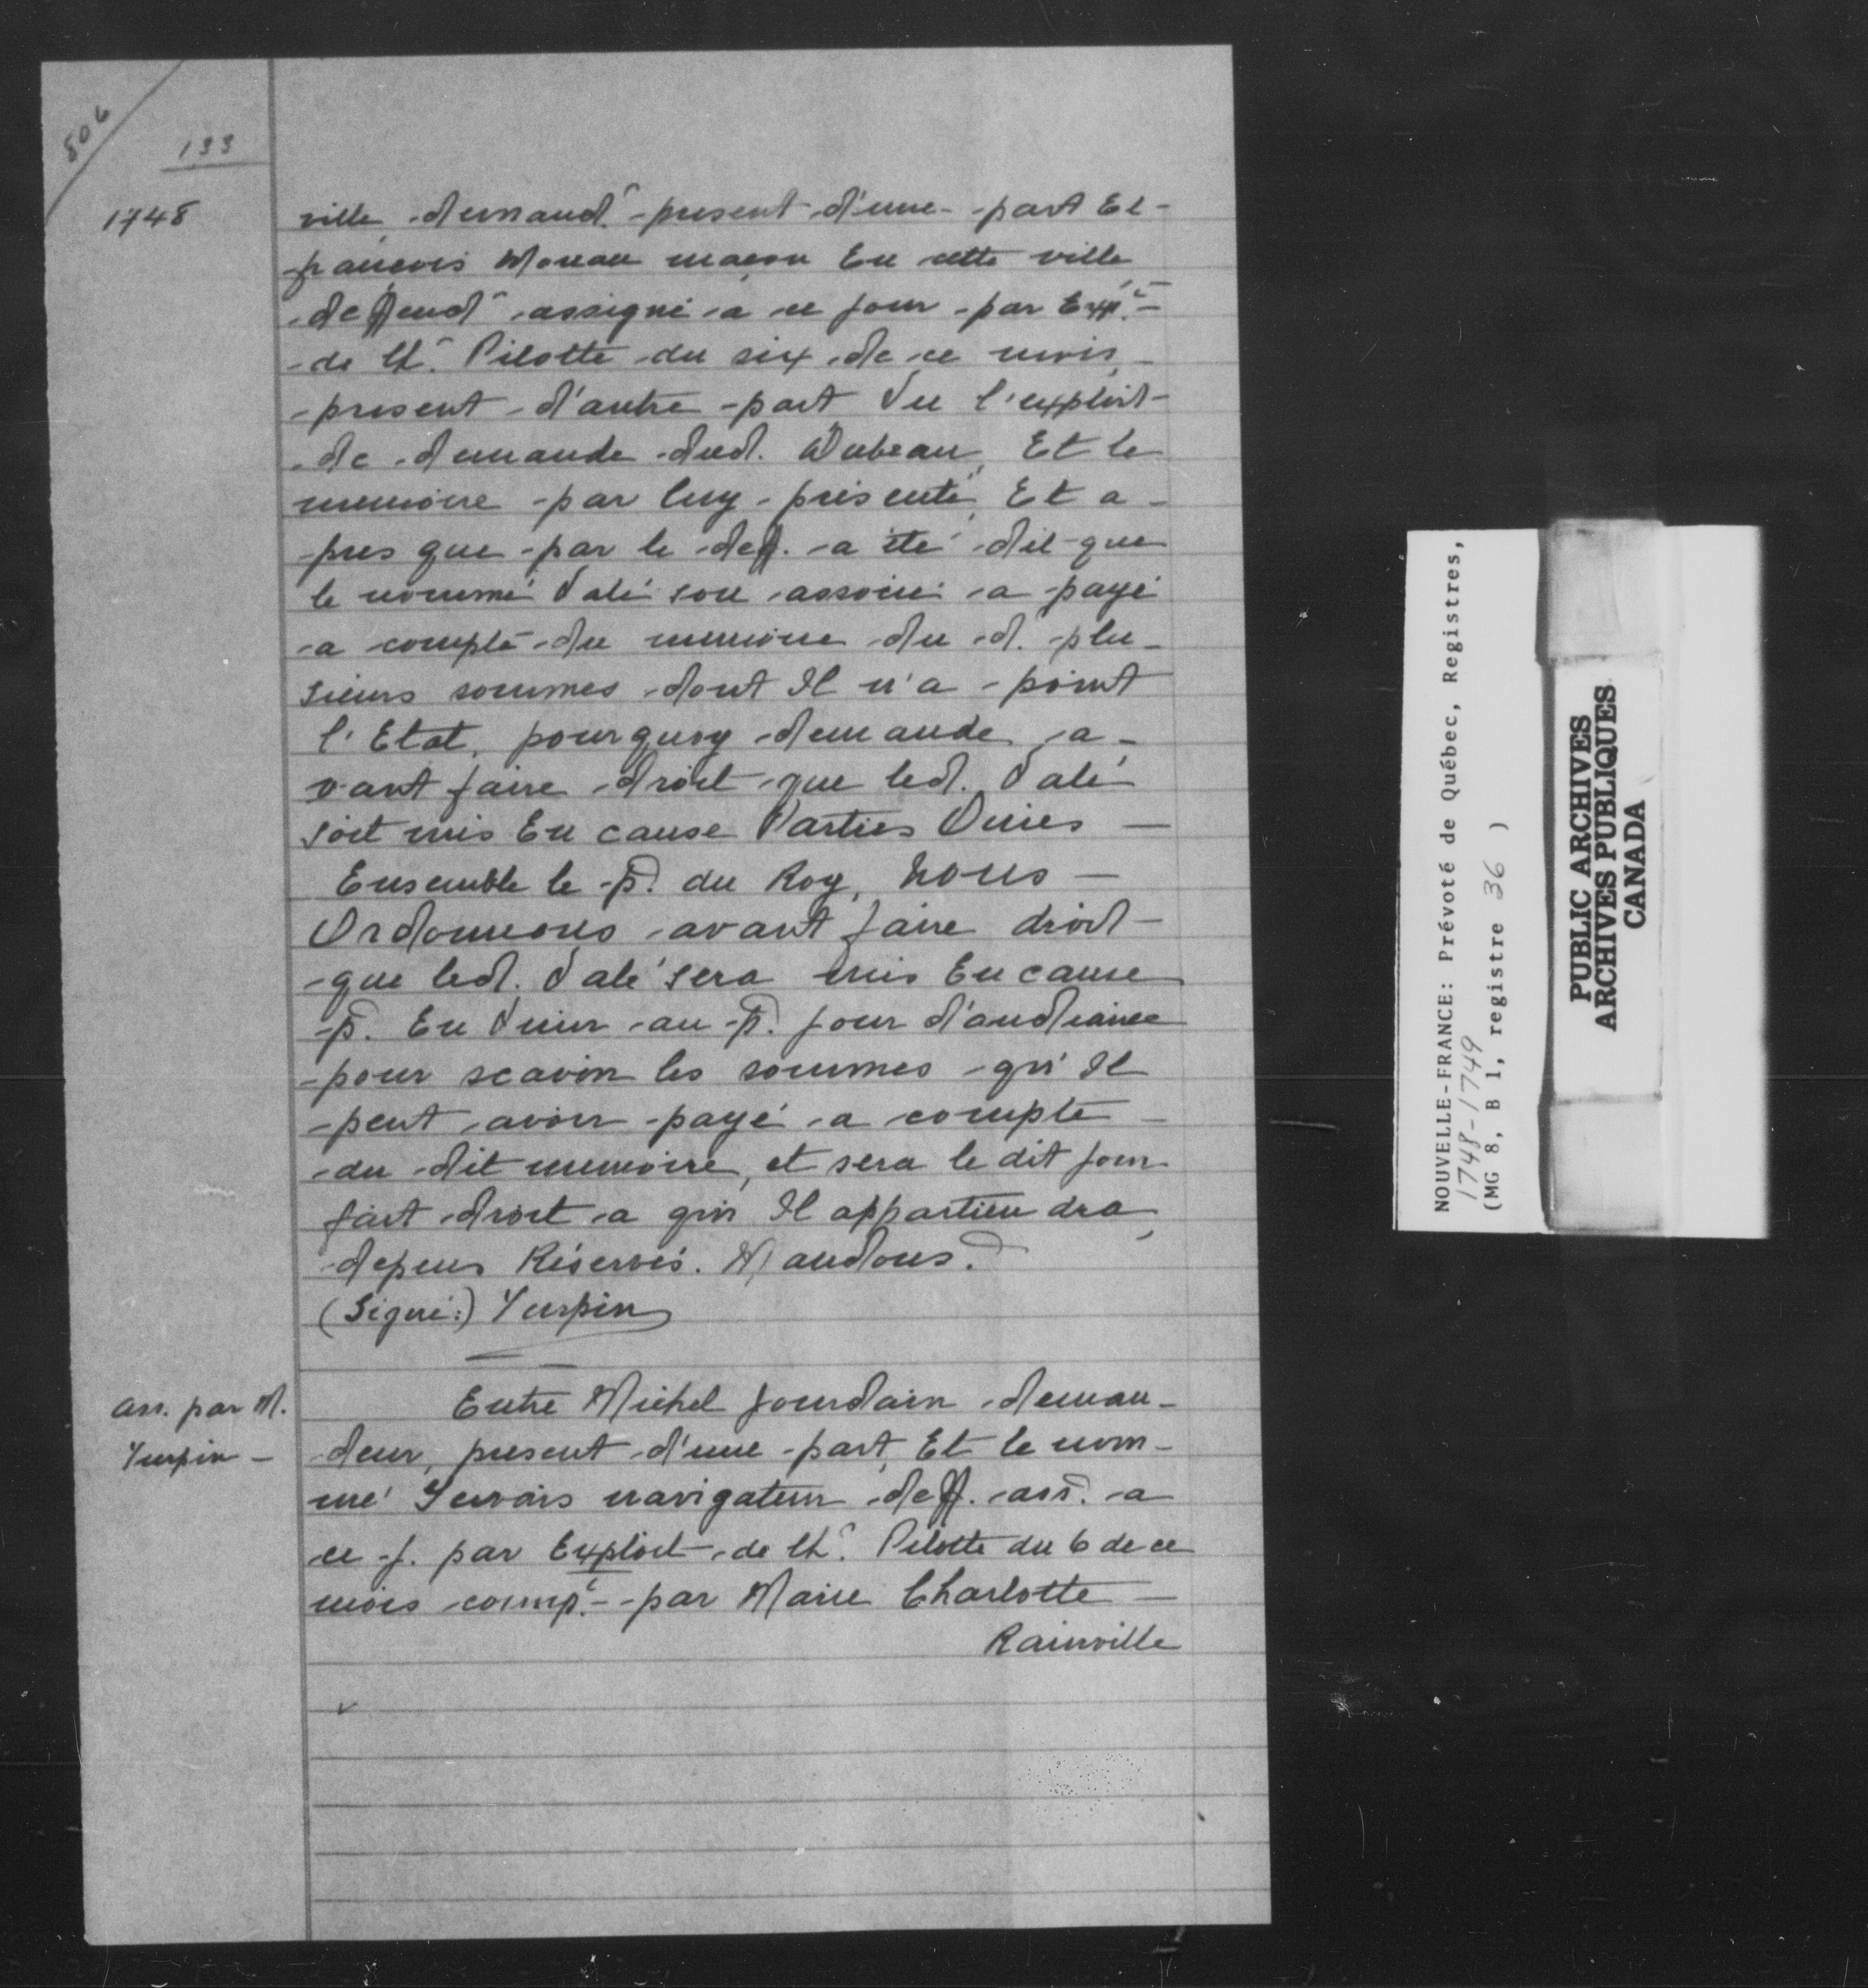 506
133
1748
ville demand.r present d'une part Et
françois Moreau maçon En cette ville
deffend.r assigné a ce jour par Exp.t
de Ch.r Pilotte du six de ce mois
present d'autre part Vu l'exploit
de demande dud. Dubeau, Et le
memoire par luy présenté, Et a-
pres que par le deff. a été dit que
le nommé Valé son associé a payé
a compte du memoire du d. plu-
sieurs sommes dont Il n'a point
l'Etat, pourquoy demande a-
vant faire droit que led. Valé
soit mis En cause Parties Ouies
Ensemble le p.r du Roy, Nous
Ordonnons avant faire droit
que led. Valé sera mis En cause
p. En Venir au p. jour d'audiance
pour scavoir les sommes qu'Il
peut avoir payé a compte
du dit memoire, et sera le dit jour
fait droit a qui Il appartiendra,
depens Réservés. Mandons.
(Signé:) Turpin
ass. par M.
Turpin -
Entre Michel Jourdain deman-
deur, present d'une part, Et le nom-
mé Gervais navigateur deff. ass. a
ce j. par Exploit de Ch.r Pilotte du 6 de ce
mois comp.t par Marie Charlotte
Rainville
NOUVELLE-FRANCE: Prévoté de Québec, Registres,
1748-1749
(MG 8, B 1, registre 36 )
PUBLIC ARCHIVES
ARCHIVES PUBLIQUES
CANADA